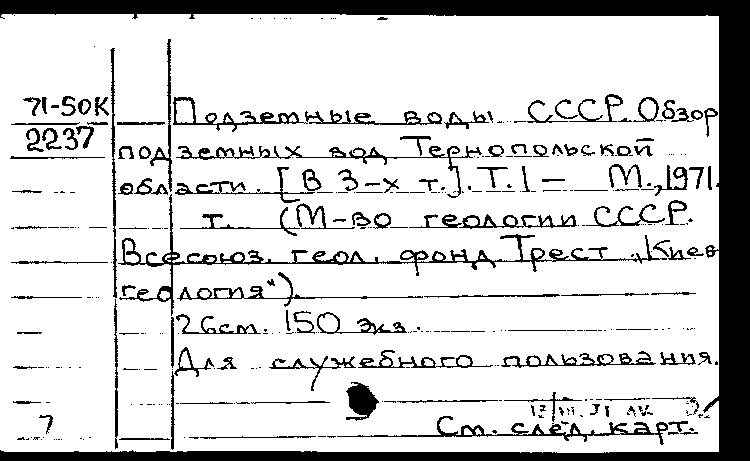 71-50К Подземные воды СССР. Обзор
2237 подземных вод Тернопольской
области. [В 3-х т.]. Т. 1 – М., 1971.
т. (М-во геологии СССР.
Всесоюз. геол. фонд. Трест „Киев
геология").
26см. 150 экз.
Для служебного пользования.
7 См. след. карт.